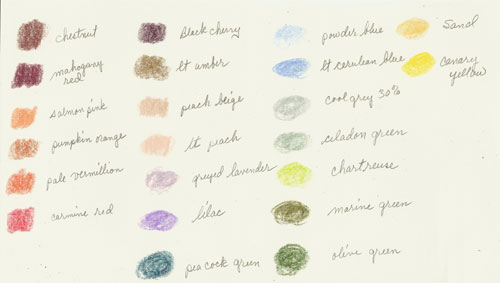 chestnut
mahogany
red
salmon pink
pumpkin orange
pale vermillion
carmine red
Black cherry
lt umber
peach beige
lt peach
greyed lavender
lilac
peacock green
powder blue
lt cerulean blue
cool grey 30%
celadon green
chartreuse
marine green
olive green
Sand
Canary
yellow